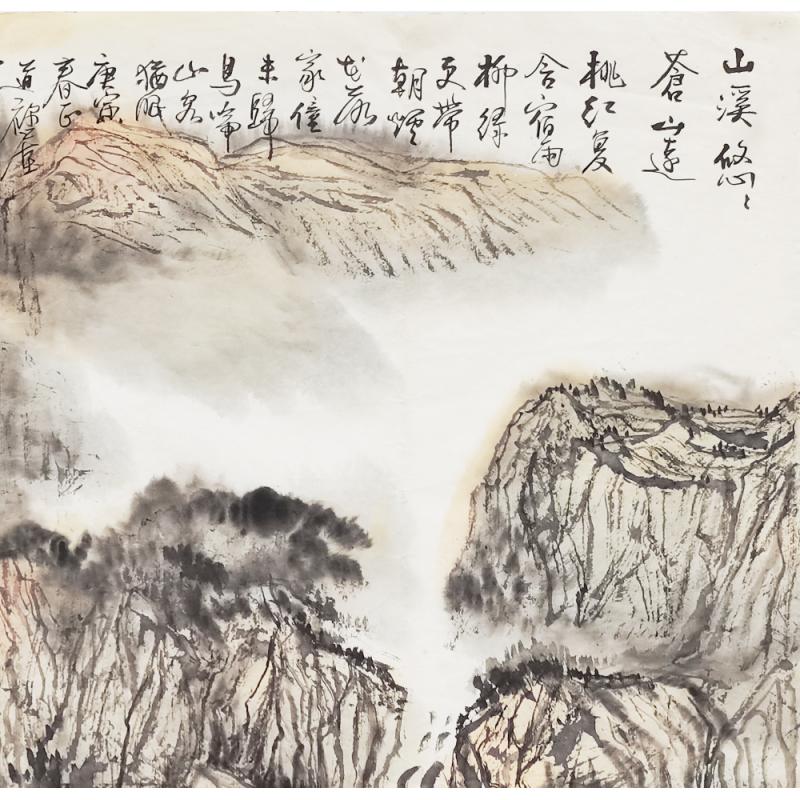 山溪悠〻
蒼山遠
桃红复
含宿雨
柳绿
更帶
朝煙
花落
家僮
未歸
鳥啼
山客
猶眠
庚寅
春正
道